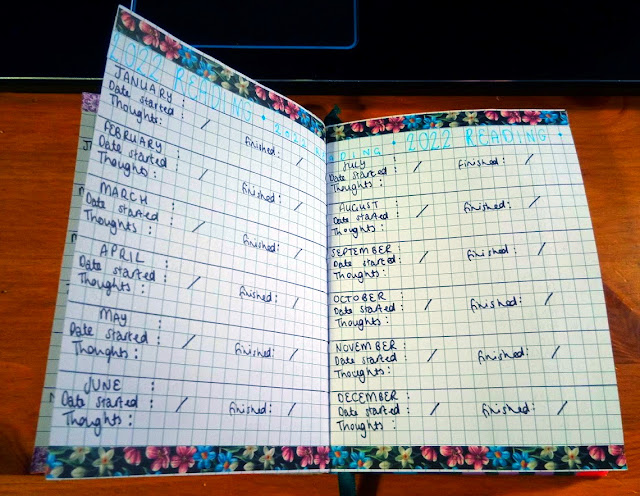 2022 READING • 2022 READING • 2022 READING •
JANUARY :
Date started : / finished: /
Thoughts:
FEBRUARY :
Date started : / finished: /
Thoughts:
MARCH :
Date started : / finished: /
Thoughts:
APRIL :
Date started : / finished: /
Thoughts :
MAY :
Date started : / finished: /
Thoughts:
JUNE :
Date started : / finished: /
Thoughts :
JULY :
Date started: / finished: /
Thoughts:
AUGUST :
Date started: / finished: /
Thoughts :
SEPTEMBER:
Date started: / finished: /
Thoughts:
OCTOBER :
Date started: / finished: /
Thoughts:
NOVEMBER :
Date started : / finished: /
Thoughts:
DECEMBER :
Date started : / finished: /
Thoughts :